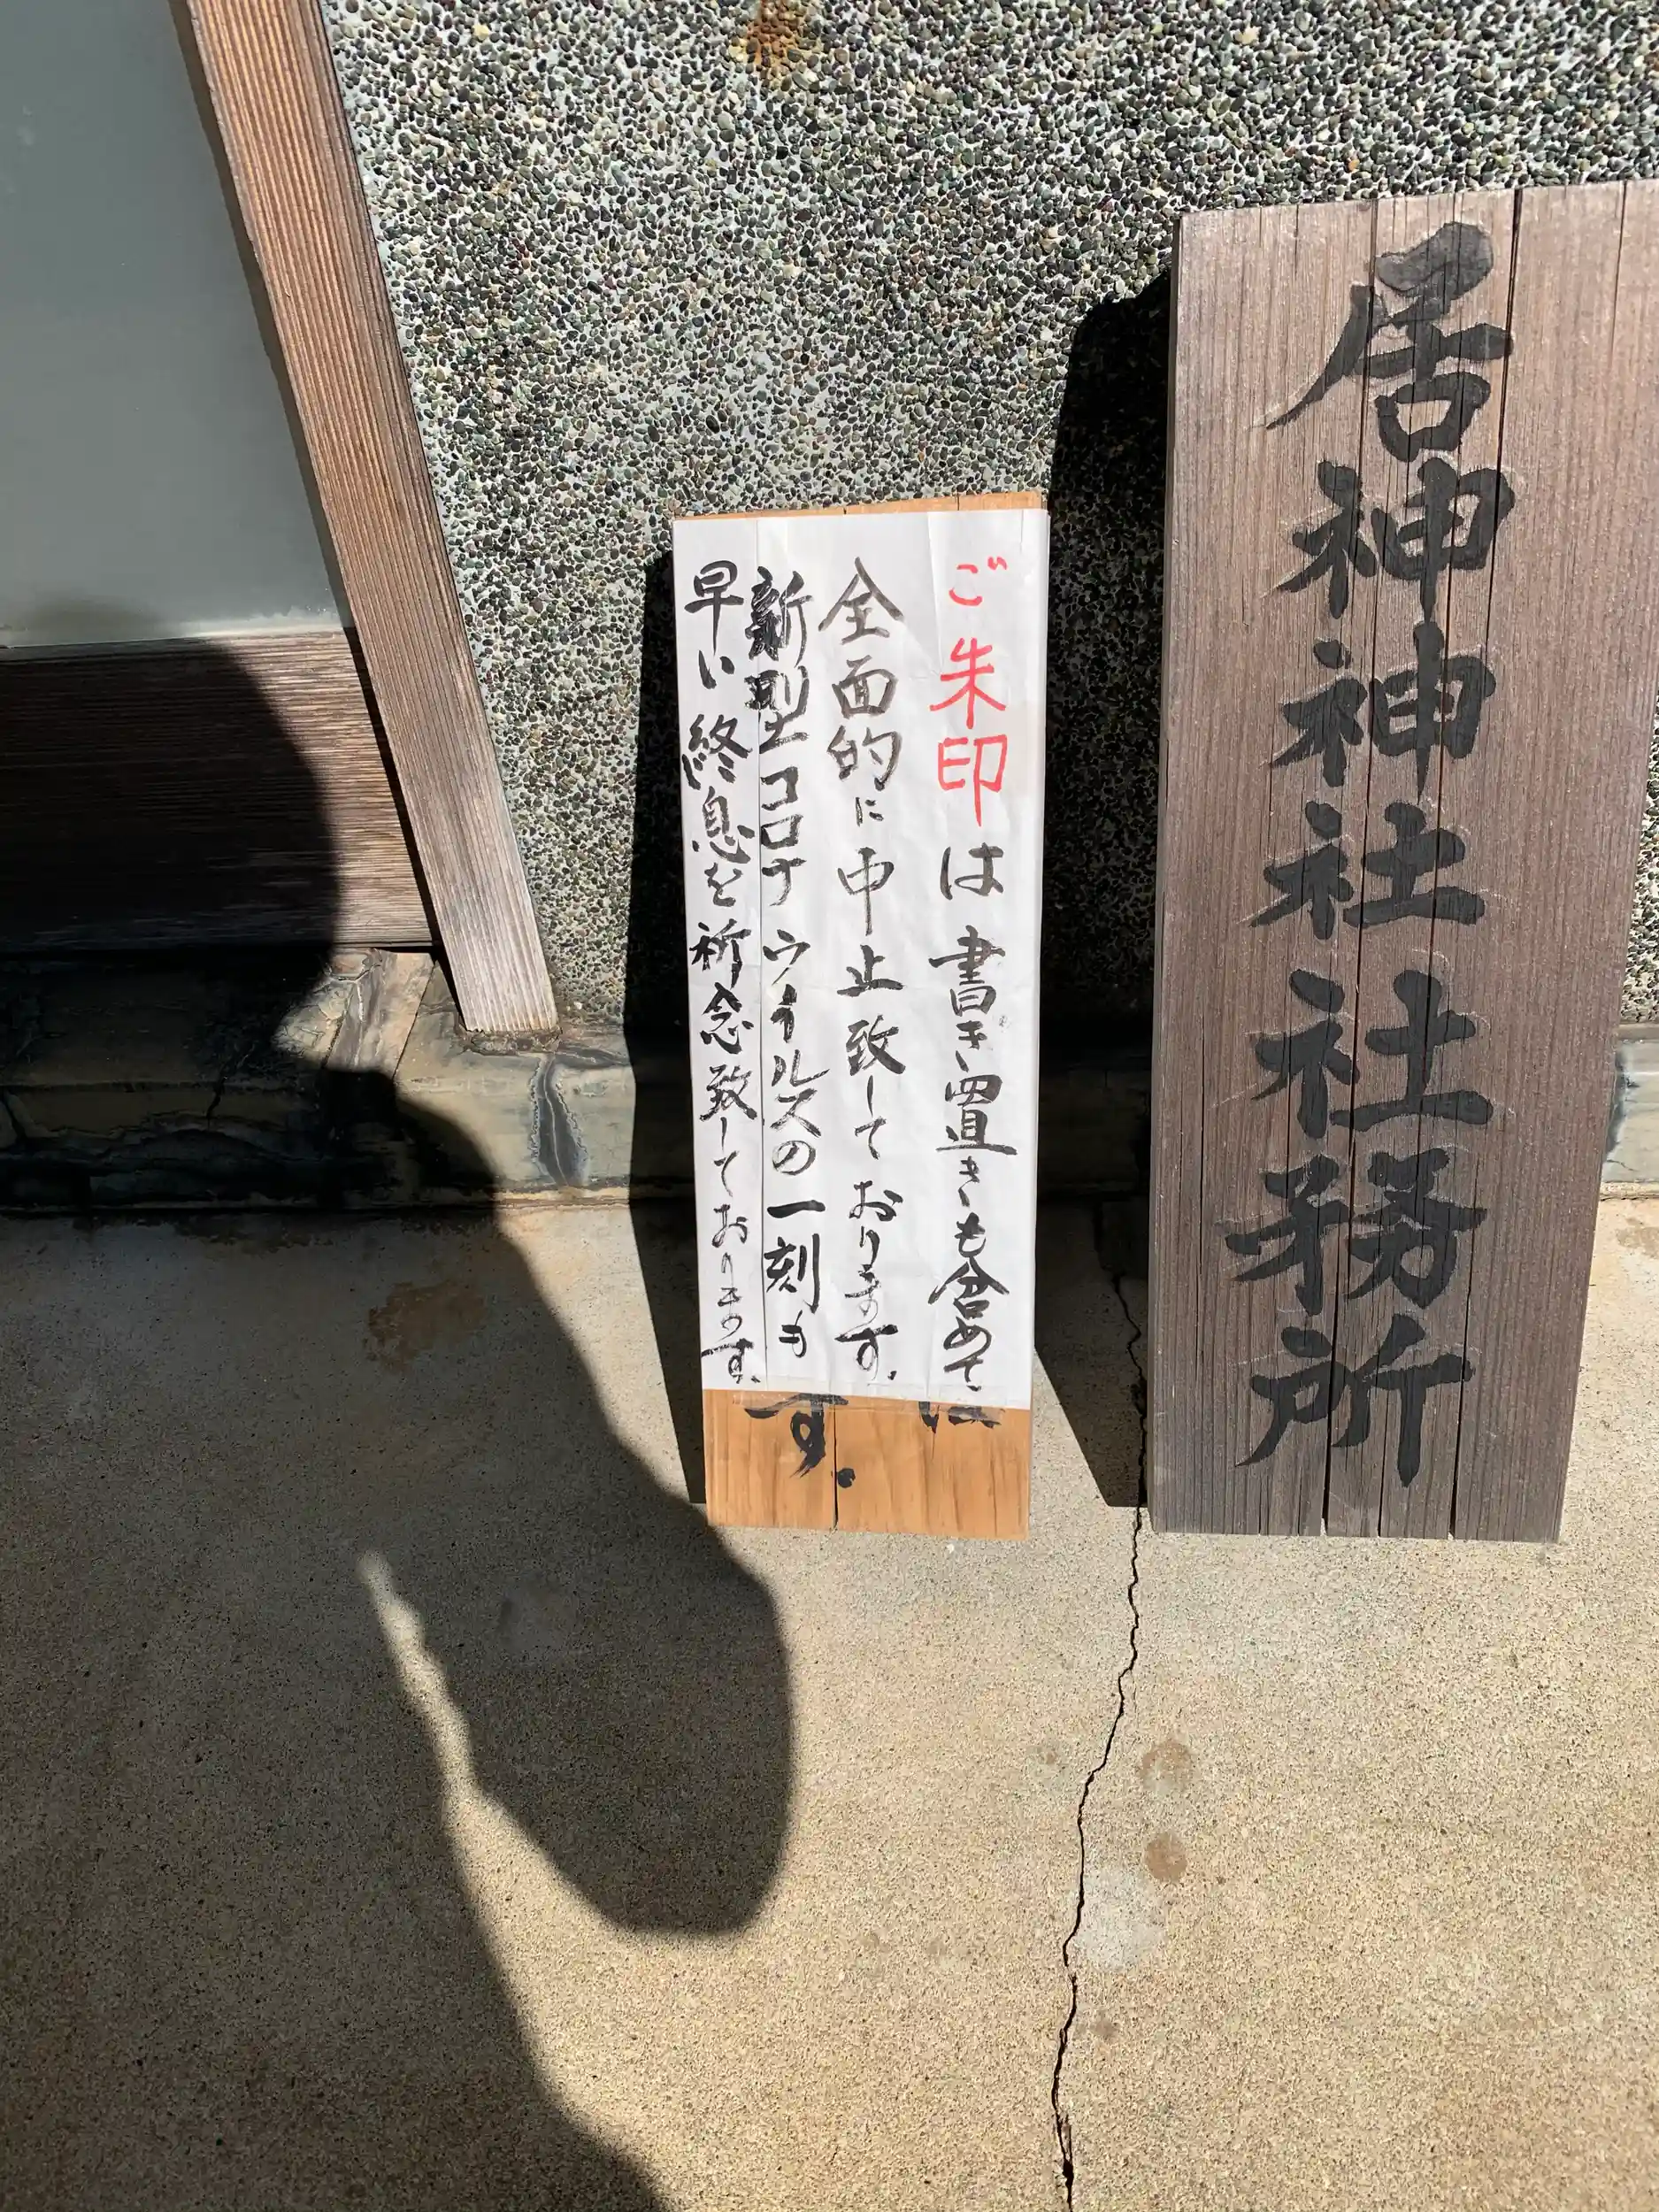 居神神社社務所
ご朱印は書き置きも含めて、
全面的に中止致しております。
新型コロナウイルスの一刻も
早い終息を祈念致しております。
す。